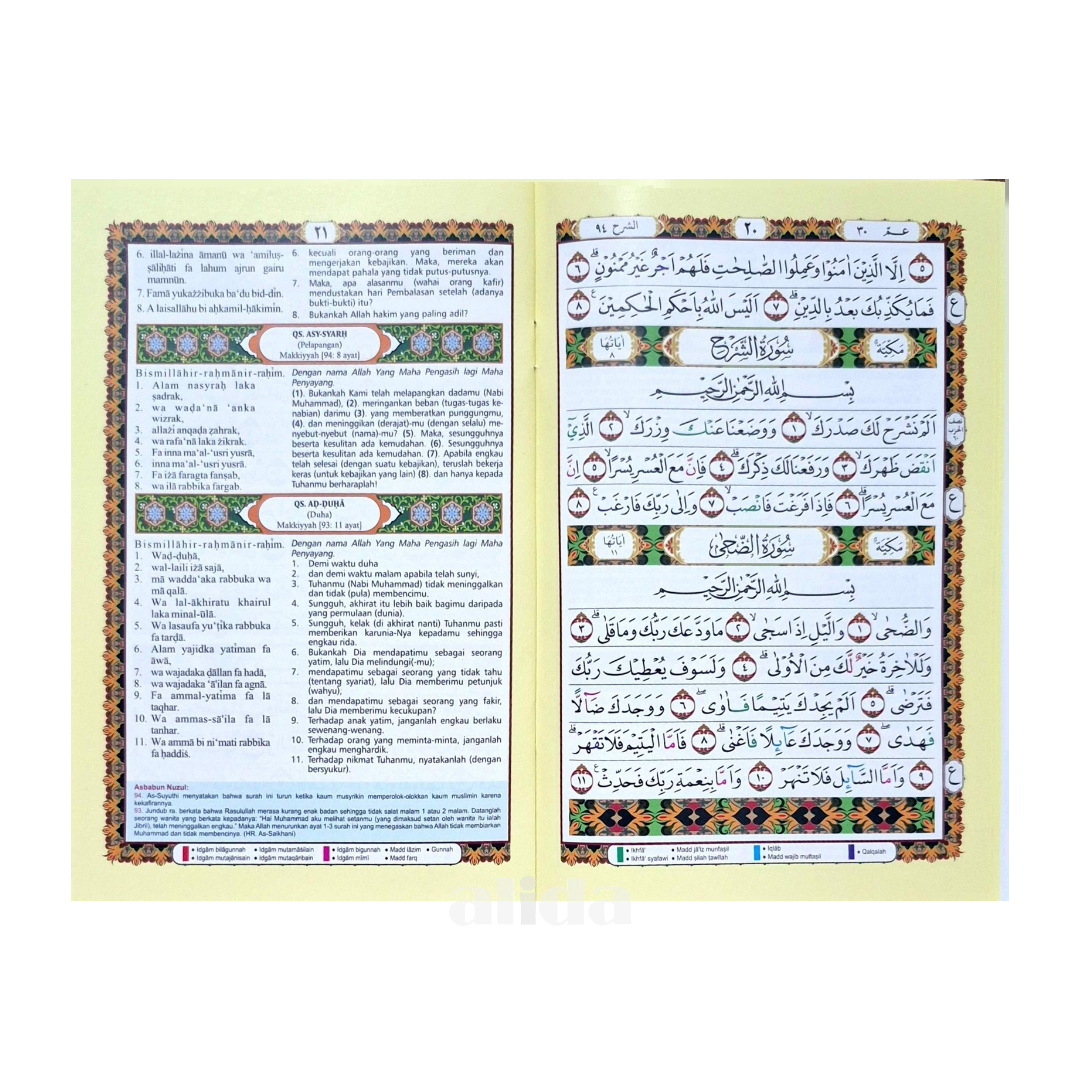 ٢١
6. illal-lażīna āmanū wa ‘amiluṣ-
ṣāliḥāti fa lahum ajrun gairu
mamnūn.
7. Famā yukażżibuka ba‘du bid-dīn.
8. A laisallāhu bi aḥkamil-ḥākimīn.
6. kecuali orang-orang yang beriman dan
mengerjakan kebajikan. Maka, mereka akan
mendapat pahala yang tidak putus-putusnya.
7. Maka, apa alasanmu (wahai orang kafir)
mendustakan hari Pembalasan setelah (adanya
bukti-bukti) itu?
8. Bukankah Allah hakim yang paling adil?
QS. ASY-SYARḤ
(Pelapangan)
Makkiyyah [94: 8 ayat]
Bismillāhir-raḥmānir-raḥīm.
1. Alam nasyraḥ laka
ṣadrak,
2. wa waḍa‘nā ‘anka
wizrak,
3. allażī anqaḍa ẓahrak,
4. wa rafa‘nā laka żikrak.
5. Fa inna ma‘al-‘usri yusrā,
6. inna ma‘al-‘usri yusrā.
7. Fa iżā faragta fanṣab,
8. wa ilā rabbika fargab.
Dengan nama Allah Yang Maha Pengasih lagi Maha
Penyayang.
(1). Bukankah Kami telah melapangkan dadamu (Nabi
Muhammad), (2). meringankan beban (tugas-tugas ke-
nabian) darimu (3). yang memberatkan punggungmu,
(4). dan meninggikan (derajat)-mu (dengan selalu) me-
nyebut-nyebut (nama)-mu? (5). Maka, sesungguhnya
beserta kesulitan ada kemudahan. (6). Sesungguhnya
beserta kesulitan ada kemudahan. (7). Apabila engkau
telah selesai (dengan suatu kebajikan), teruslah bekerja
keras (untuk kebajikan yang lain) (8). dan hanya kepada
Tuhanmu berharaplah!
QS. AḌ-ḌUḤĀ
(Duha)
Makkiyyah [93: 11 ayat]
Bismillāhir-raḥmānir-raḥīm.
1. Waḍ-ḍuḥā,
2. wal-laili iżā sajā,
3. mā wadda‘aka rabbuka wa
mā qalā.
4. Wa lal-ākhiratu khairul
laka minal-ūlā.
5. Wa lasaufa yu‘ṭīka rabbuka
fa tarḍā.
6. Alam yajidka yatīman fa
āwā,
7. wa wajadaka ḍāllan fa hadā,
8. wa wajadaka ‘ā'ilan fa agnā.
9. Fa ammal-yatīma fa lā
taqhar.
10. Wa ammas-sā'ila fa lā
tanhar.
11. Wa ammā bi ni‘mati rabbika
fa ḥaddiṡ.
Dengan nama Allah Yang Maha Pengasih lagi Maha
Penyayang.
1. Demi waktu duha
2. dan demi waktu malam apabila telah sunyi,
3. Tuhanmu (Nabi Muhammad) tidak meninggalkan
dan tidak (pula) membencimu.
4. Sungguh, akhirat itu lebih baik bagimu daripada
yang permulaan (dunia).
5. Sungguh, kelak (di akhirat nanti) Tuhanmu pasti
memberikan karunia-Nya kepadamu sehingga
engkau rida.
6. Bukankah Dia mendapatimu sebagai seorang
yatim, lalu Dia melindungi(-mu);
7. mendapatimu sebagai seorang yang tidak tahu
(tentang syariat), lalu Dia memberimu petunjuk
(wahyu),
8. dan mendapatimu sebagai seorang yang fakir,
lalu Dia memberimu kecukupan?
9. Terhadap anak yatim, janganlah engkau berlaku
sewenang-wenang.
10. Terhadap orang yang meminta-minta, janganlah
engkau menghardik.
11. Terhadap nikmat Tuhanmu, nyatakanlah (dengan
bersyukur).
Asbabun Nuzul:
94. As-Suyuthi menyatakan bahwa surah ini turun ketika kaum musyrikin memperolok-olokkan kaum muslimin karena
kekafirannya.
93. Jundub ra. berkata bahwa Rasulullah merasa kurang enak badan sehingga tidak salat malam 1 atau 2 malam. Datanglah
seorang wanita yang berkata kepadanya: "Hai Muhammad aku melihat setanmu (yang dimaksud setan oleh wanita itu ialah
Jibril), telah meninggalkan engkau." Maka Allah menurunkan ayat 1-3 surah ini yang menegaskan bahwa Allah tidak membiarkan
Muhammad dan tidak membencinya. (HR. As-Saikhani)
• Idgām bilāgunnah • Idgām mutamāṡilain • Idgām bigunnah • Madd lāzim • Gunnah
• Idgām mutajānisain • Idgām mutaqāribain • Idgām mīmī • Madd farq
الشرح ٩٤ ٢٠ عمّ ٣٠
٥ اِلَّا الَّذِيْنَ اٰمَنُوْا وَعَمِلُوا الصّٰلِحٰتِ فَلَهُمْ اَجْرٌ غَيْرُ مَمْنُوْنٍۗ ٦
فَمَا يُكَذِّبُكَ بَعْدُ بِالدِّيْنِۗ ٧ اَلَيْسَ اللّٰهُ بِاَحْكَمِ الْحٰكِمِيْنَ ࣖ ٨
ع
مَكِّيَّة سُوْرَةُ الشَّرْحِ اٰيَاتُهَا ٨
بِسْمِ اللّٰهِ الرَّحْمٰنِ الرَّحِيْمِ
اَلَمْ نَشْرَحْ لَكَ صَدْرَكَۙ ١ وَوَضَعْنَا عَنْكَ وِزْرَكَۙ ٢ الَّذِيْٓ
اَنْقَضَ ظَهْرَكَۙ ٣ وَرَفَعْنَا لَكَ ذِكْرَكَۗ ٤ فَاِنَّ مَعَ الْعُسْرِ يُسْرًاۙ ٥ اِنَّ
مَعَ الْعُسْرِ يُسْرًاۗ ٦ فَاِذَا فَرَغْتَ فَانْصَبْۙ ٧ وَاِلٰى رَبِّكَ فَارْغَبْ ࣖ ٨
ع
مَكِّيَّة سُوْرَةُ الضُّحٰى اٰيَاتُهَا ١١
بِسْمِ اللّٰهِ الرَّحْمٰنِ الرَّحِيْمِ
وَالضُّحٰىۙ ١ وَالَّيْلِ اِذَا سَجٰىۙ ٢ مَا وَدَّعَكَ رَبُّكَ وَمَا قَلٰىۗ ٣
وَلَلْاٰخِرَةُ خَيْرٌ لَّكَ مِنَ الْاُوْلٰىۗ ٤ وَلَسَوْفَ يُعْطِيْكَ رَبُّكَ
فَتَرْضٰىۗ ٥ اَلَمْ يَجِدْكَ يَتِيْمًا فَاٰوٰىۖ ٦ وَوَجَدَكَ ضَاۤلًّا
فَهَدٰىۖ ٧ وَوَجَدَكَ عَاۤىِٕلًا فَاَغْنٰىۗ ٨ فَاَمَّا الْيَتِيْمَ فَلَا تَقْهَرْۗ
٩ وَاَمَّا السَّاۤىِٕلَ فَلَا تَنْهَرْ ١٠ وَاَمَّا بِنِعْمَةِ رَبِّكَ فَحَدِّثْ ࣖ ١١
ع
• Ikhfā' • Madd jā'iz munfaṣil • Iqlāb • Qalqalah
• Ikhfā' syafawi • Madd ṣilah ṭawīlah • Madd wajib muttaṣil
alida